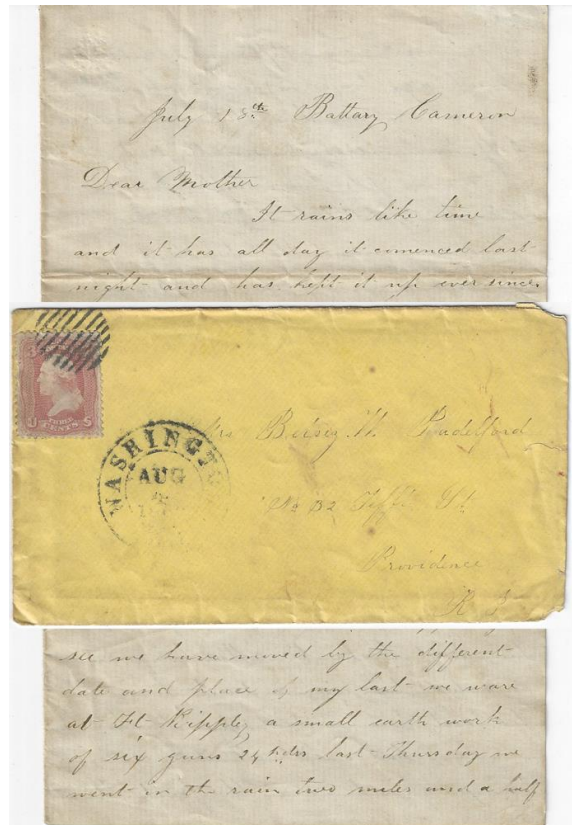 July 13th Battary Cameron
Dear Mother
It rains like time
and it has all day it comenced last
night and has kept it up ever since.
THREE
CENTS
U S
WASHINGTO
AUG
Mrs Betsey W.
No 32 St
Providence
R I
see we have moved by the different
date and place of my last we ware
at Ft Ripply a small earth work
of six guns 24 pdrs last Thursday we
went in the rain two miles and a half